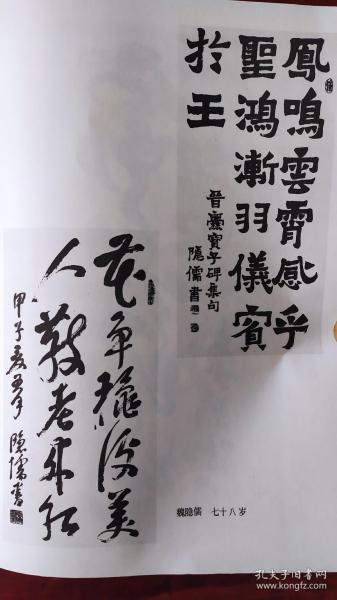 鳳鳴雲霄感乎
聖鴻漸羽儀賓
於王
晉爨寶子碑集句
隱儒書
花争穠後美
人敬老來紅
甲子夏 隱儒書
魏隐儒 七十八岁
孔夫子旧书网